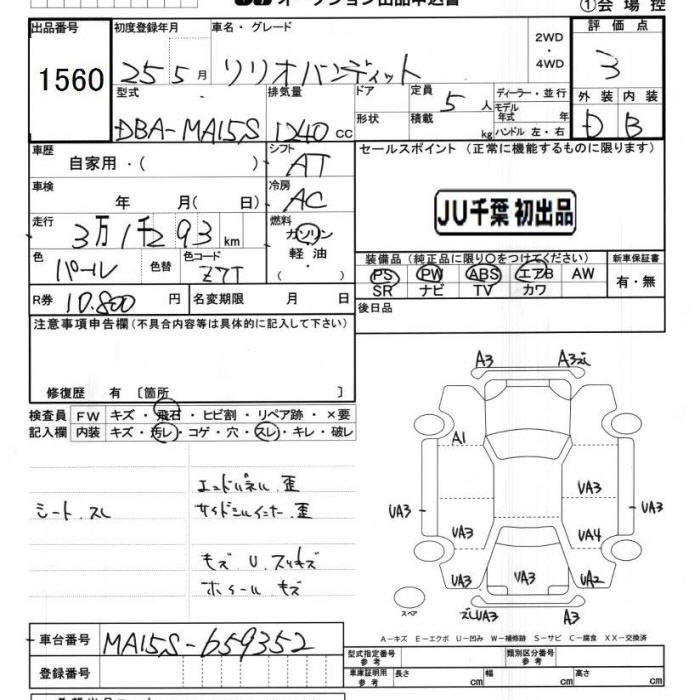 オークション出品申込書
①会場控
出品番号 1560
初度登録年月 25 5月
車名・グレード ソリオバンディット
2WD・4WD
評価点 3
型式 DBA-MA15S
排気量 1240 cc
ドア 形状
定員 5 人
積載 kg
ディーラー・並行
モデル年式 年
ハンドル 左・右
外装 D
内装 B
車歴 自家用・( )
シフト AT
セールスポイント (正常に機能するものに限ります)
車検 年 月( 日)
冷房 AC
JU千葉 初出品
走行 3万1千293 km
燃料 ガソリン・軽油・
色 パール 色替
色コード Z7T
装備品 (純正品に限り○をつけてください)
新車保証書 有・無
PS PW ABS エアB AW
SR ナビ TV カワ
R券 10,800 円
名変期限 月 日
後日品
注意事項申告欄(不具合内容等は具体的に記入して下さい)
修復歴 有〔箇所 〕
検査員記入欄
FW キズ・飛石・ヒビ割・リペア跡・×要
内装 キズ・汚レ・コゲ・穴・スレ・キレ・破レ
シート.スレ
エンドパネル.歪
サイドシルインナー.歪
キズ U.スリキズ
ホイール キズ
A3 A3ズレ
A1
UA3 UA3 UA3
UA3 UA4
UA3 UA3 UA2
ズレUA3 A3
スペア
A-キズ E-エクボ U-凹み W-補修跡 S-サビ C-腐食 XX-交換済
車台番号 MA15S-659352
登録番号
型式指定番号 参考
類別区分番号 参考
車庫証明用 参考 長さ cm 幅 cm 高さ cm